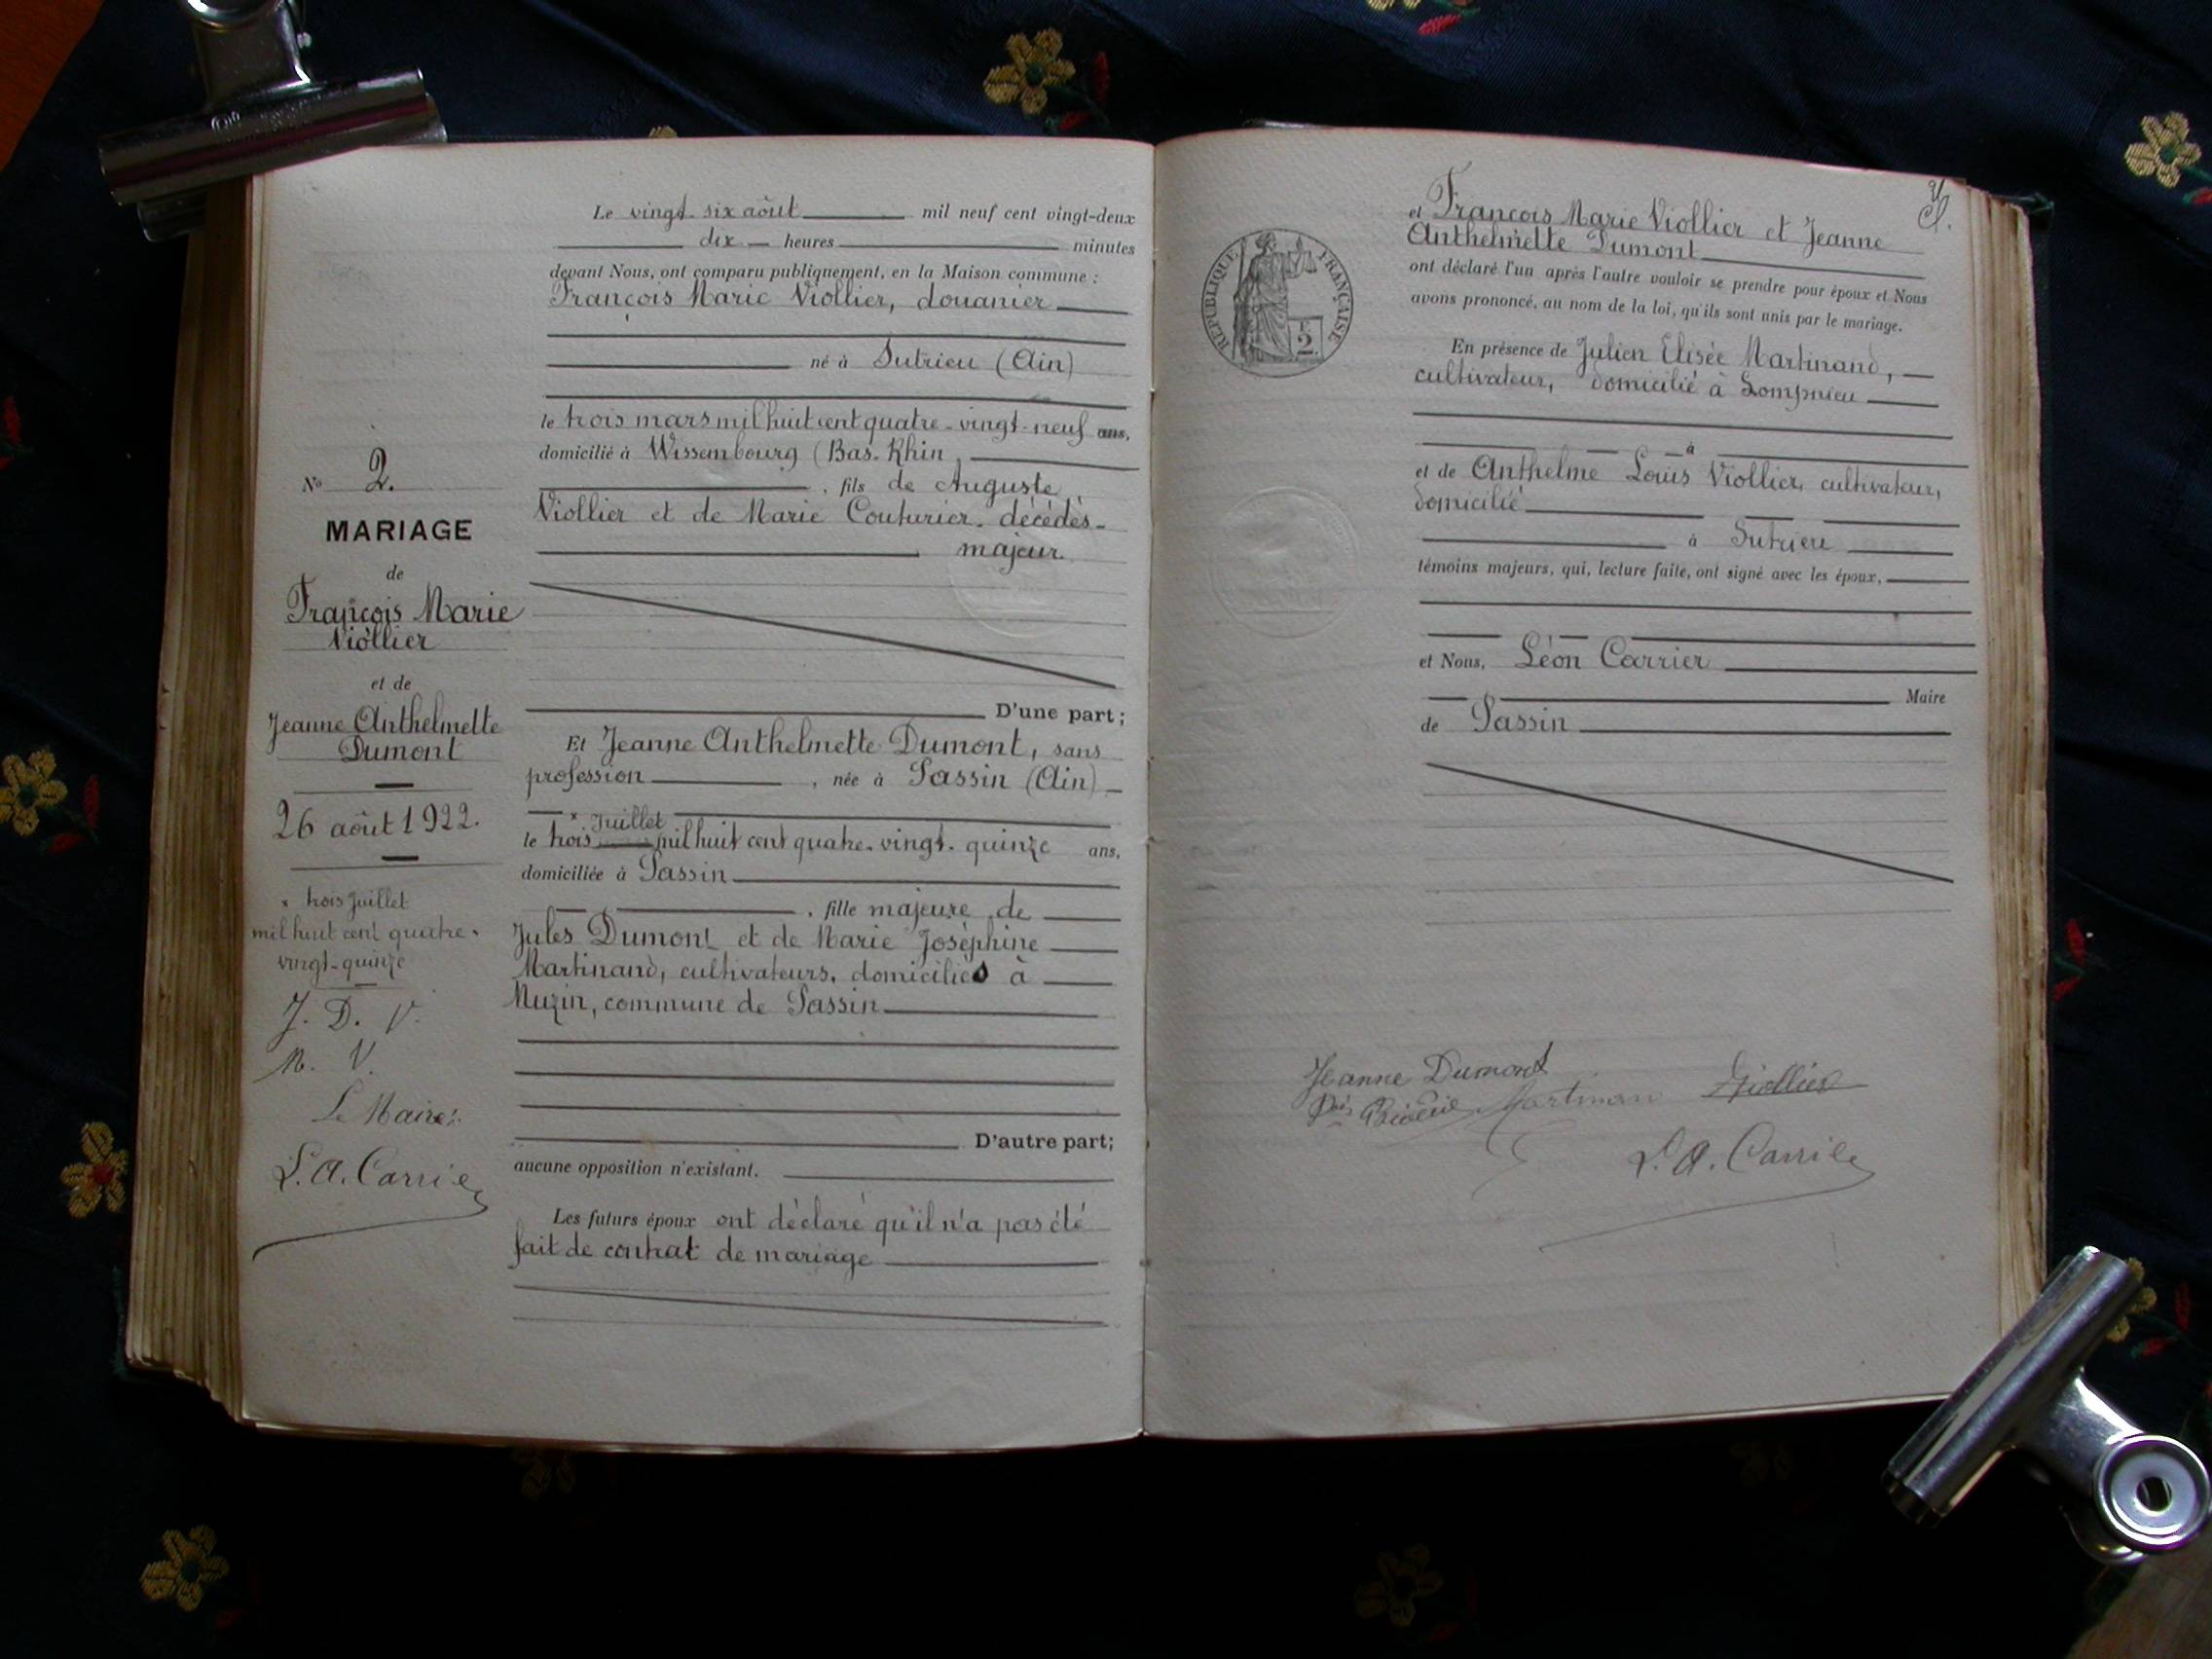 Le vingt-six août mil neuf cent vingt-deux
dix heures minutes
devant Nous, ont comparu publiquement, en la Maison commune :
François Marie Viollier, douanier
né à Sutrieu (Ain)
le trois mars mil huit cent quatre-vingt-neuf ans,
domicilié à Wissembourg (Bas-Rhin
, fils de Auguste
Viollier et de Marie Couturier. décédés-
majeur.
D'une part;
Et Jeanne Anthelmette Dumont, sans
profession , née à Passin (Ain)
x Juillet
le trois mil huit cent quatre-vingt-quinze ans,
domiciliée à Passin
, fille majeure de
Jules Dumont et de Marie Joséphine
Martinand, cultivateurs, domiciliés à
Muzin, commune de Passin
D'autre part;
aucune opposition n'existant.
Les futurs époux ont déclaré qu'il n'a pas été
fait de contrat de mariage
No 2.
MARIAGE
de
François Marie
Viollier
et de
Jeanne Anthelmette
Dumont
26 août 1922.
x trois Juillet
mil huit cent quatre-
vingt-quinze
J. D. V.
M. V.
Le Maire:
L. A. Carrier
et François Marie Viollier et Jeanne
Anthelmette Dumont
ont déclaré l'un après l'autre vouloir se prendre pour époux et Nous
avons prononcé, au nom de la loi, qu'ils sont unis par le mariage.
En présence de Julien Elisée Martinand,
cultivateur, domicilié à Lompnieu
à
et de Anthelme Louis Viollier, cultivateur,
domicilié
à Sutrieu
témoins majeurs, qui, lecture faite, ont signé avec les époux,
et Nous, Léon Carrier
Maire
de Passin
RÉPUBLIQUE FRANÇAISE
2
Jeanne Dumont Viollier
Martinand
L. A. Carrier